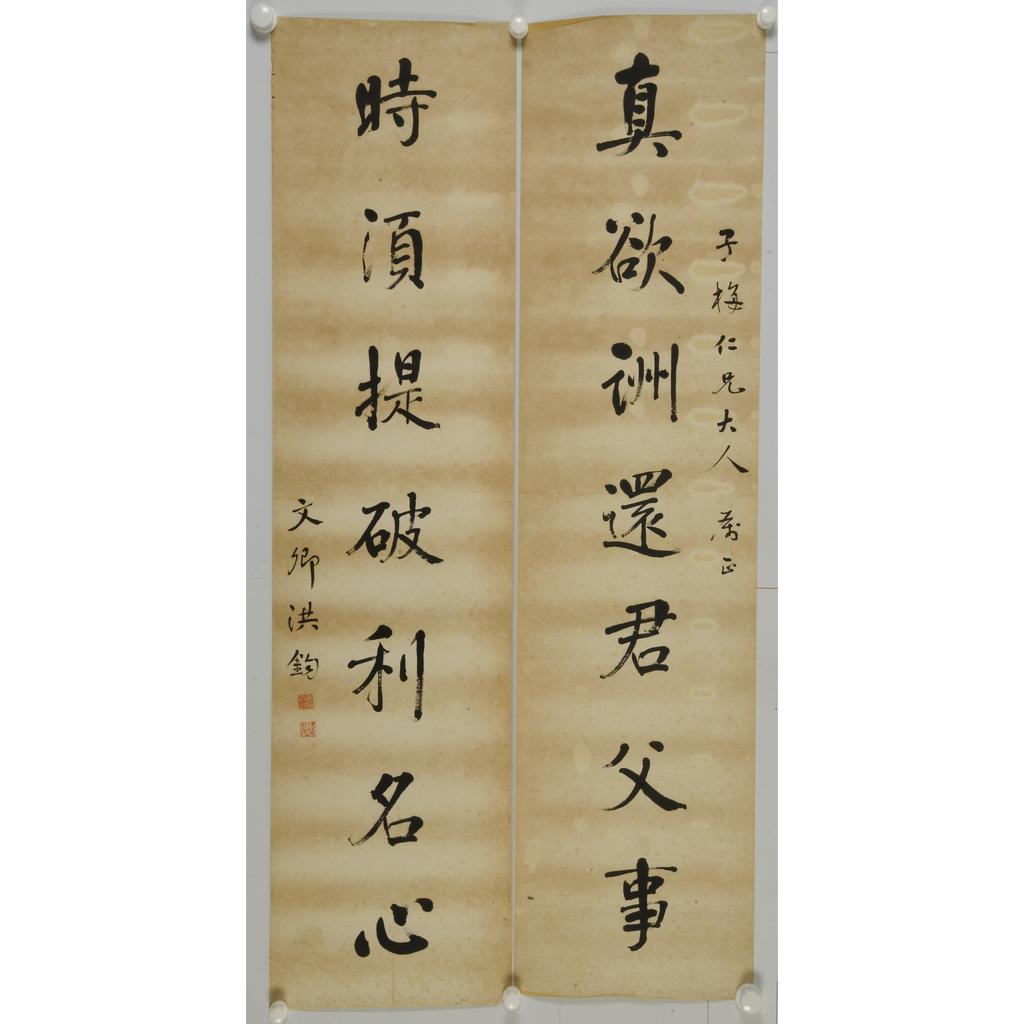 子梅仁兄大人属正
真欲詶還君父事
時湏提破利名心
文卿洪鈞